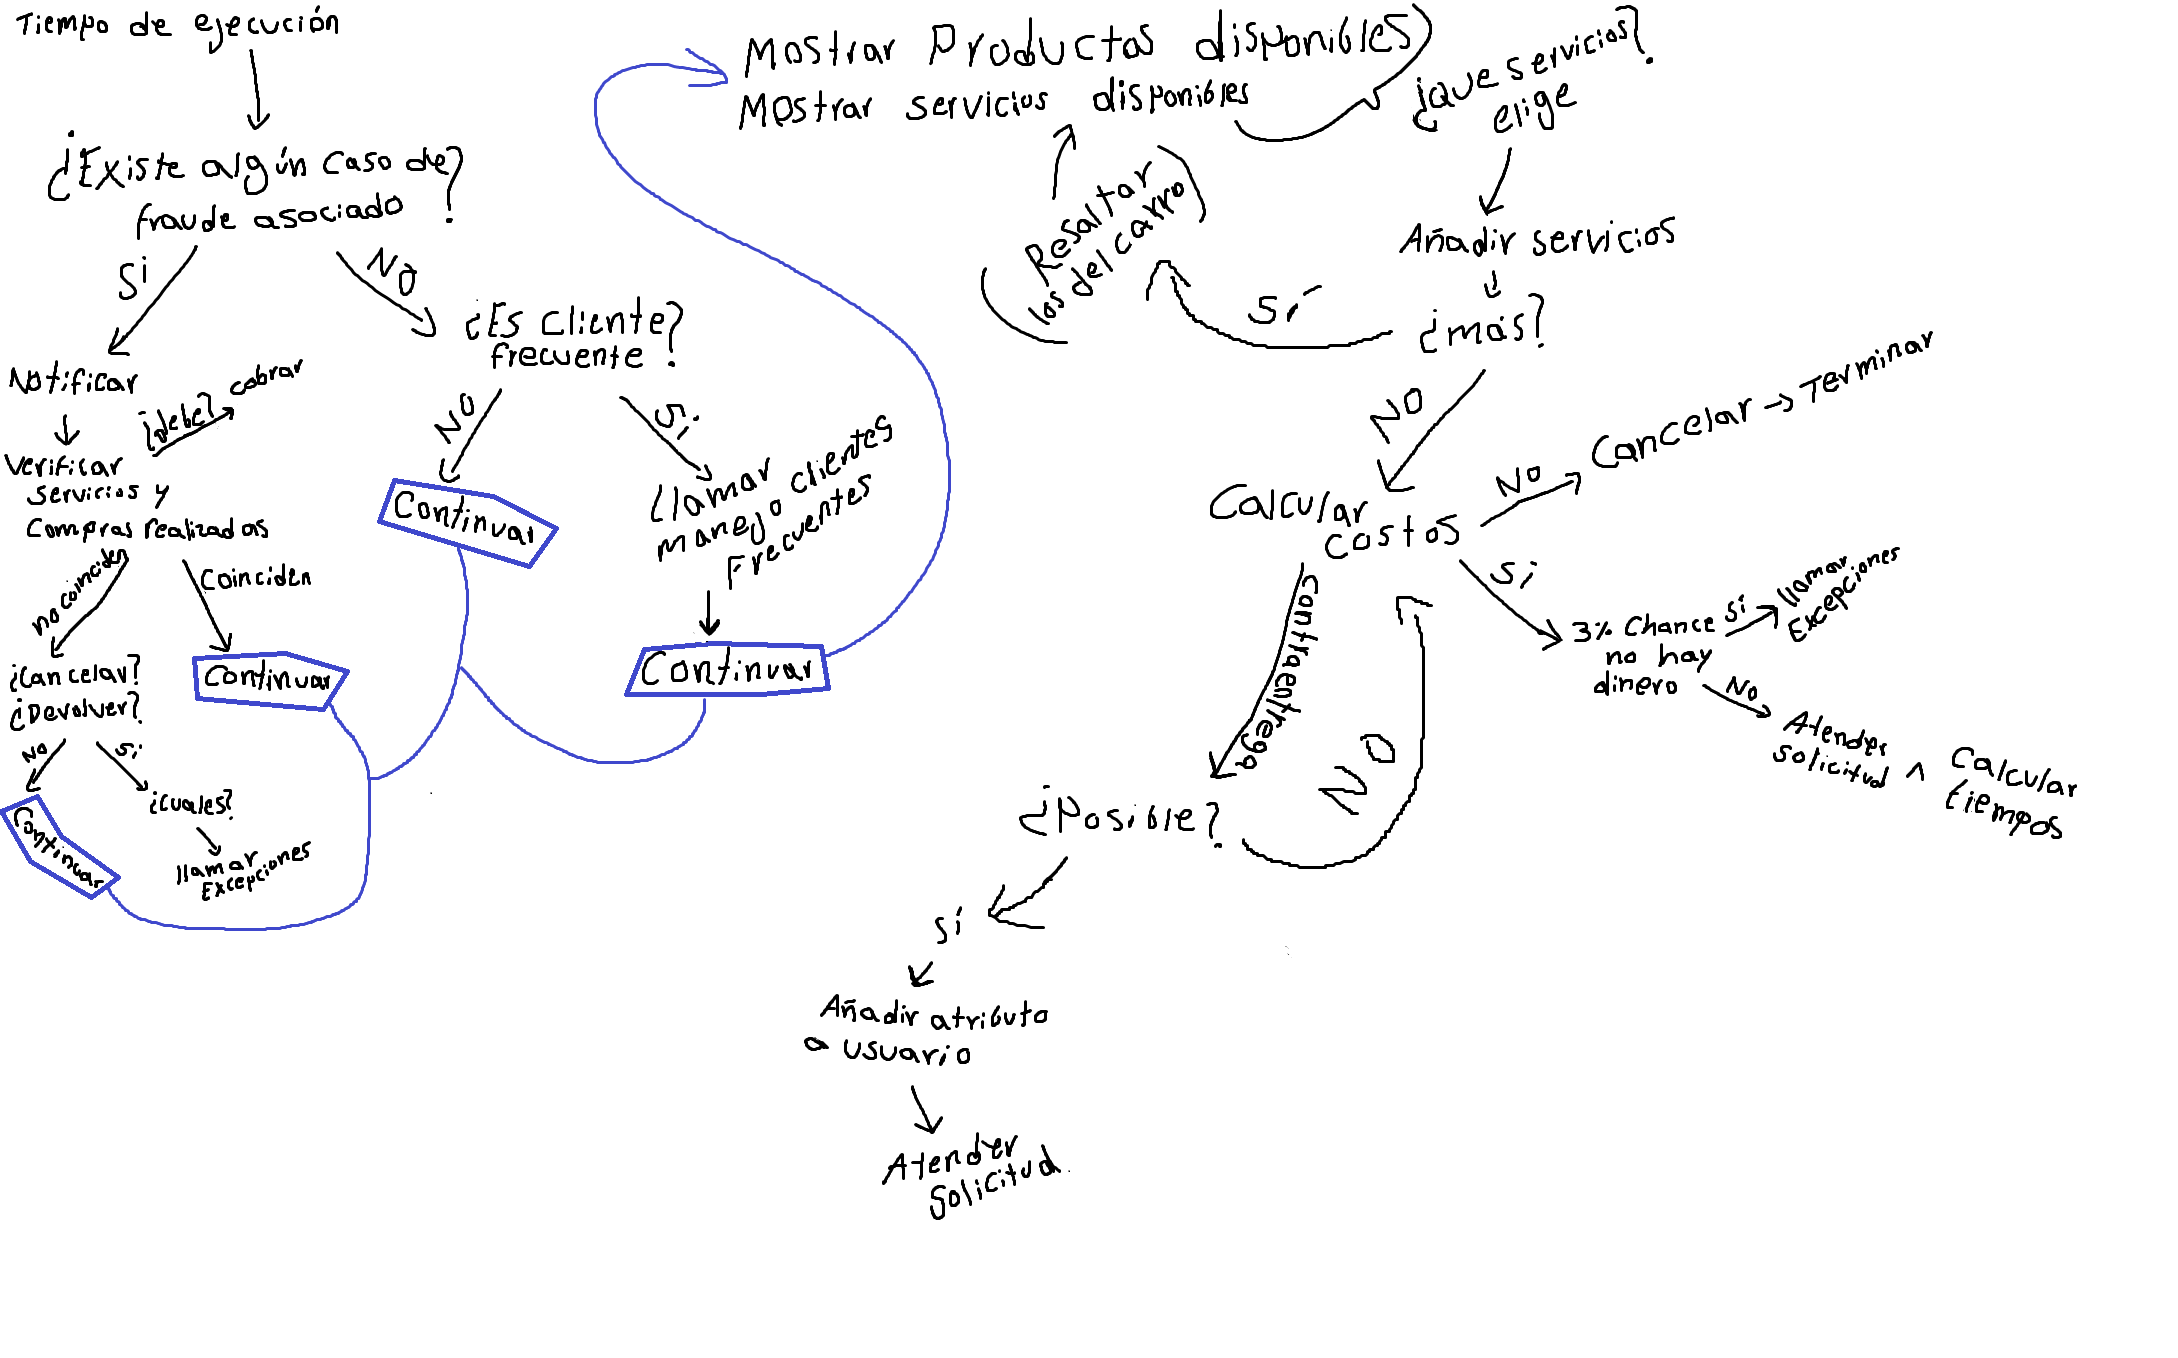 Tiempo de ejecución
¿Existe algún caso de
fraude asociado?
Si
No
Notificar
¿debe?
cobrar
Verificar
servicios y
Compras realizadas
no coinciden
Coinciden
¿Cancelar?
¿Devolver?
Continuar
No
Si
¿Cuales?
Continuar
llamar
Excepciones
¿Es Cliente?
frecuente
No
Si
Continuar
Llamar
manejo clientes
Frecuentes
Continuar
Mostrar Productos disponibles
Mostrar servicios disponibles
¿que servicios?
elige
Añadir servicios
¿más?
Sí
Resaltar
los del carro
NO
Calcular
costos
No
Cancelar → Terminar
Si
3% Chance
no hay
dinero
Si
llamar
Excepciones
No
Atender
solicitud ^ Calcular
tiempos
Contraentrega
¿Posible?
NO
Sí
Añadir atributo
a usuario
Atender
Solicitud